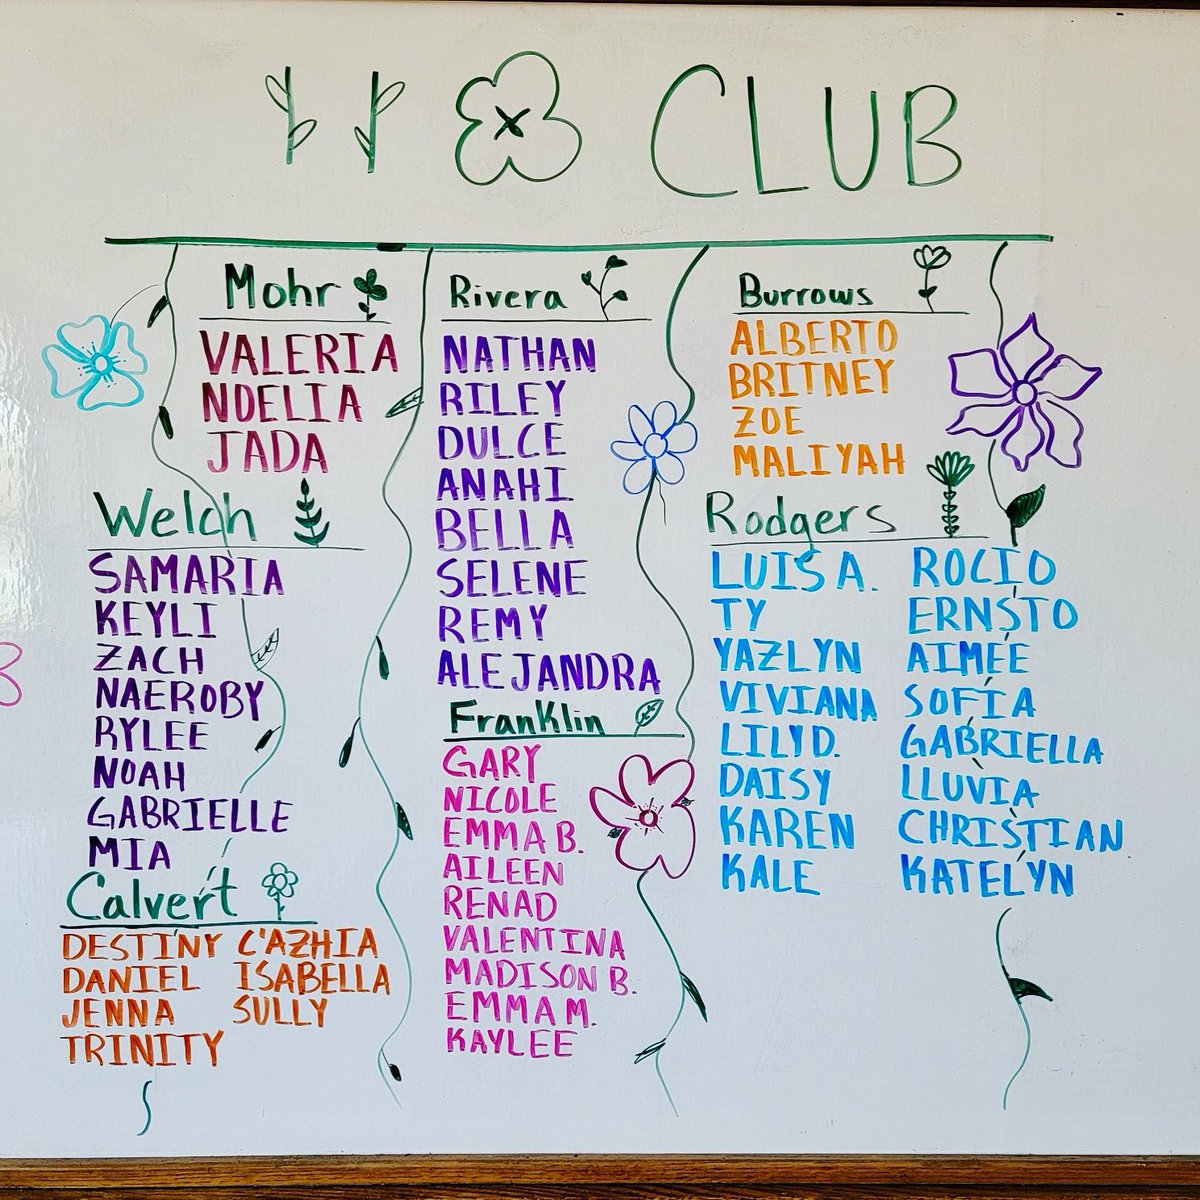 110 CLUB
Mohr
VALERIA
NOELIA
JADA
Welch
SAMARIA
KEYLI
ZACH
NAEROBY
RYLEE
NOAH
GABRIELLE
MIA
Calvert
DESTINY C'AZHIA
DANIEL ISABELLA
JENNA SULLY
TRINITY
Rivera
NATHAN
RILEY
DULCE
ANAHI
BELLA
SELENE
REMY
ALEJANDRA
Franklin
GARY
NICOLE
EMMA B.
AILEEN
RENAD
VALENTINA
MADISON B.
EMMA M.
KAYLEE
Burrows
ALBERTO
BRITNEY
ZOE
MALIYAH
Rodgers
LUIS A. ROCIO
TY ERNSTO
YAZLYN AIMEE
VIVIANA SOFIA
LILY D. GABRIELLA
DAISY LLUVIA
KAREN CHRISTIAN
KALE KATELYN